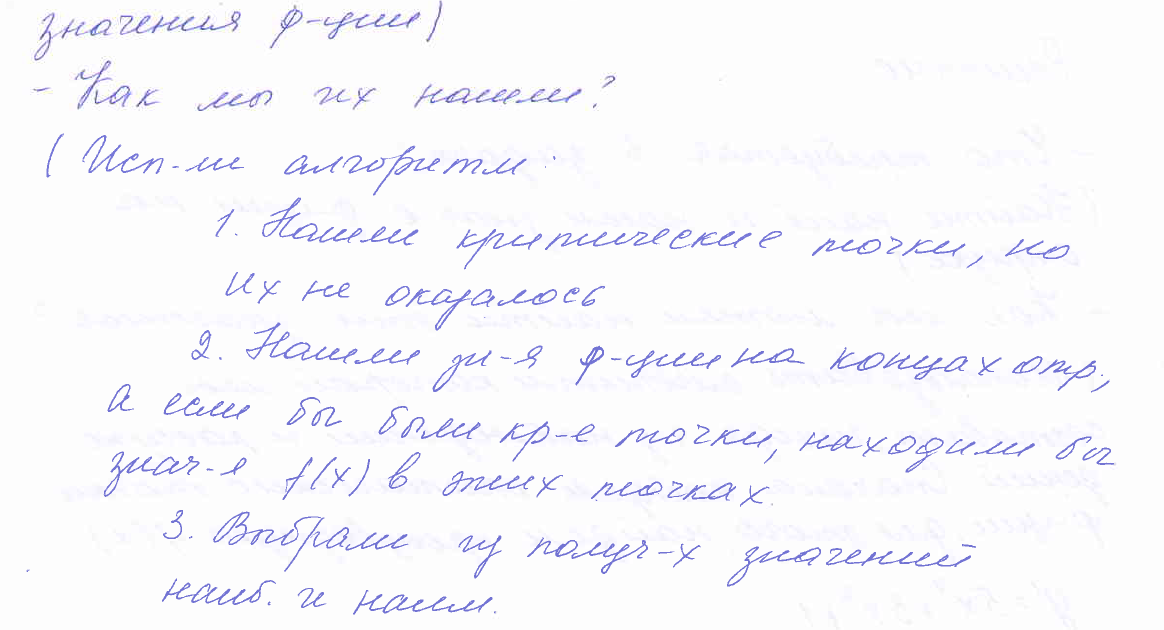 значения ф-ции)
- Как мы их нашли?
( Исп-ли алгоритм:
1. Нашли критические точки, но
их не оказалось
2. Нашли зн-я ф-ции на концах отр.,
а если бы были кр-е точки, находили бы
знач-я f(x) в этих точках.
3. Выбрали из получ-х значений
наиб. и наим.